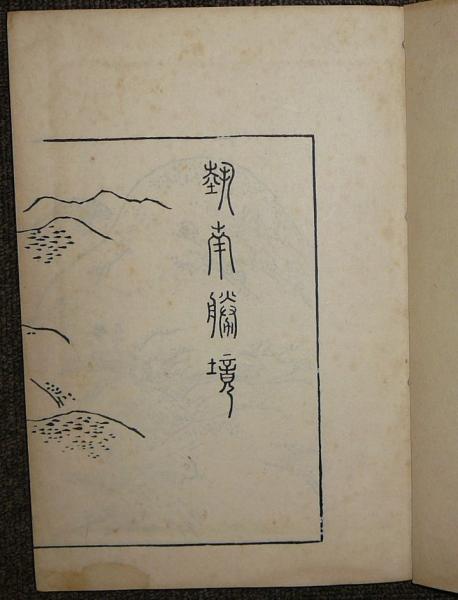 埶南勝境